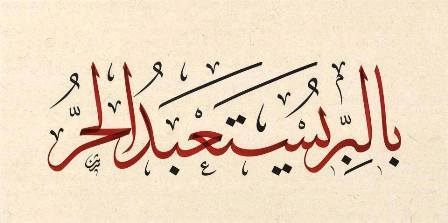 بالبِرِّ يُسْتَعْبَدُ الحُرُّ